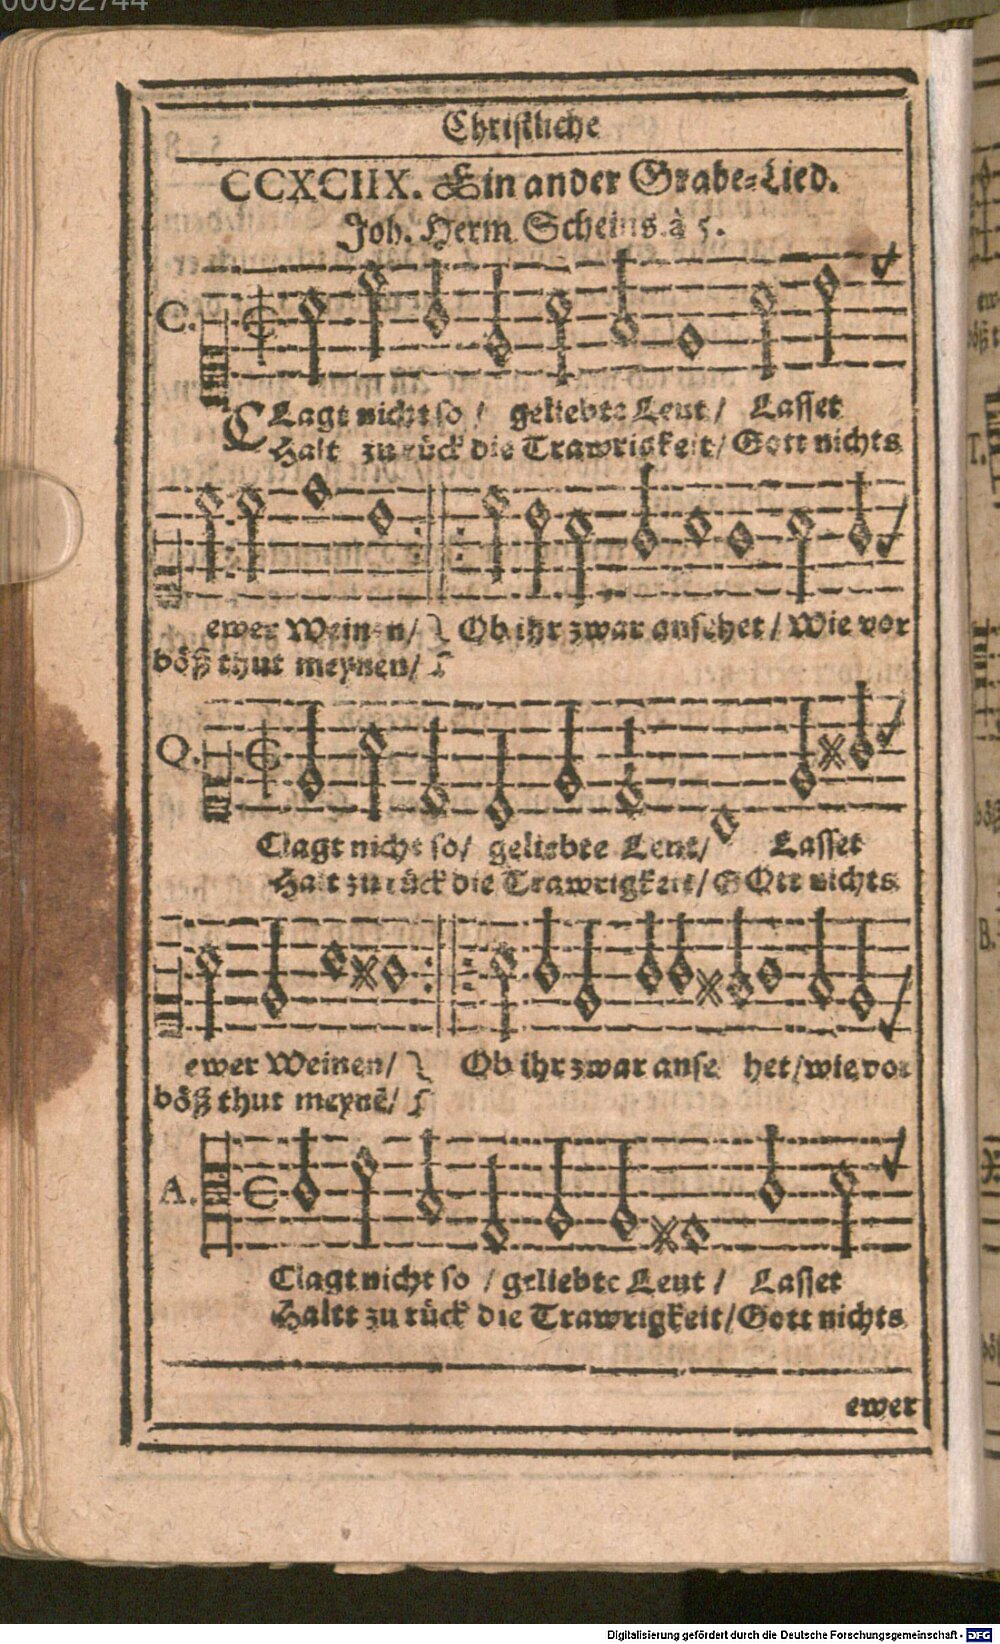 00092744
Christliche
CCXCIIX. Ein ander Grabe-Lied.
Joh. Herm. Scheins. à 5.
C.
CLagt nicht so / geliebte Leut / Lasset
Halt zu rück die Trawrigkeit / Gott nichts
ewer Weinen / Ob ihr zwar ansehet / Wie vor
böß thut meynen /
Q.
Clagt nicht so / geliebte Leut / Lasset
Halt zu rück die Trawrigkeit / GOtt nichts
ewer Weinen / Ob ihr zwar anse het / wie vor
böß thut meynē /
A.
Clagt nicht so / geliebte Leut / Lasset
Haltt zu rück die Trawrigkeit / Gott nichts
ewer
T.
B.
Digitalisierung gefördert durch die Deutsche Forschungsgemeinschaft - DFG